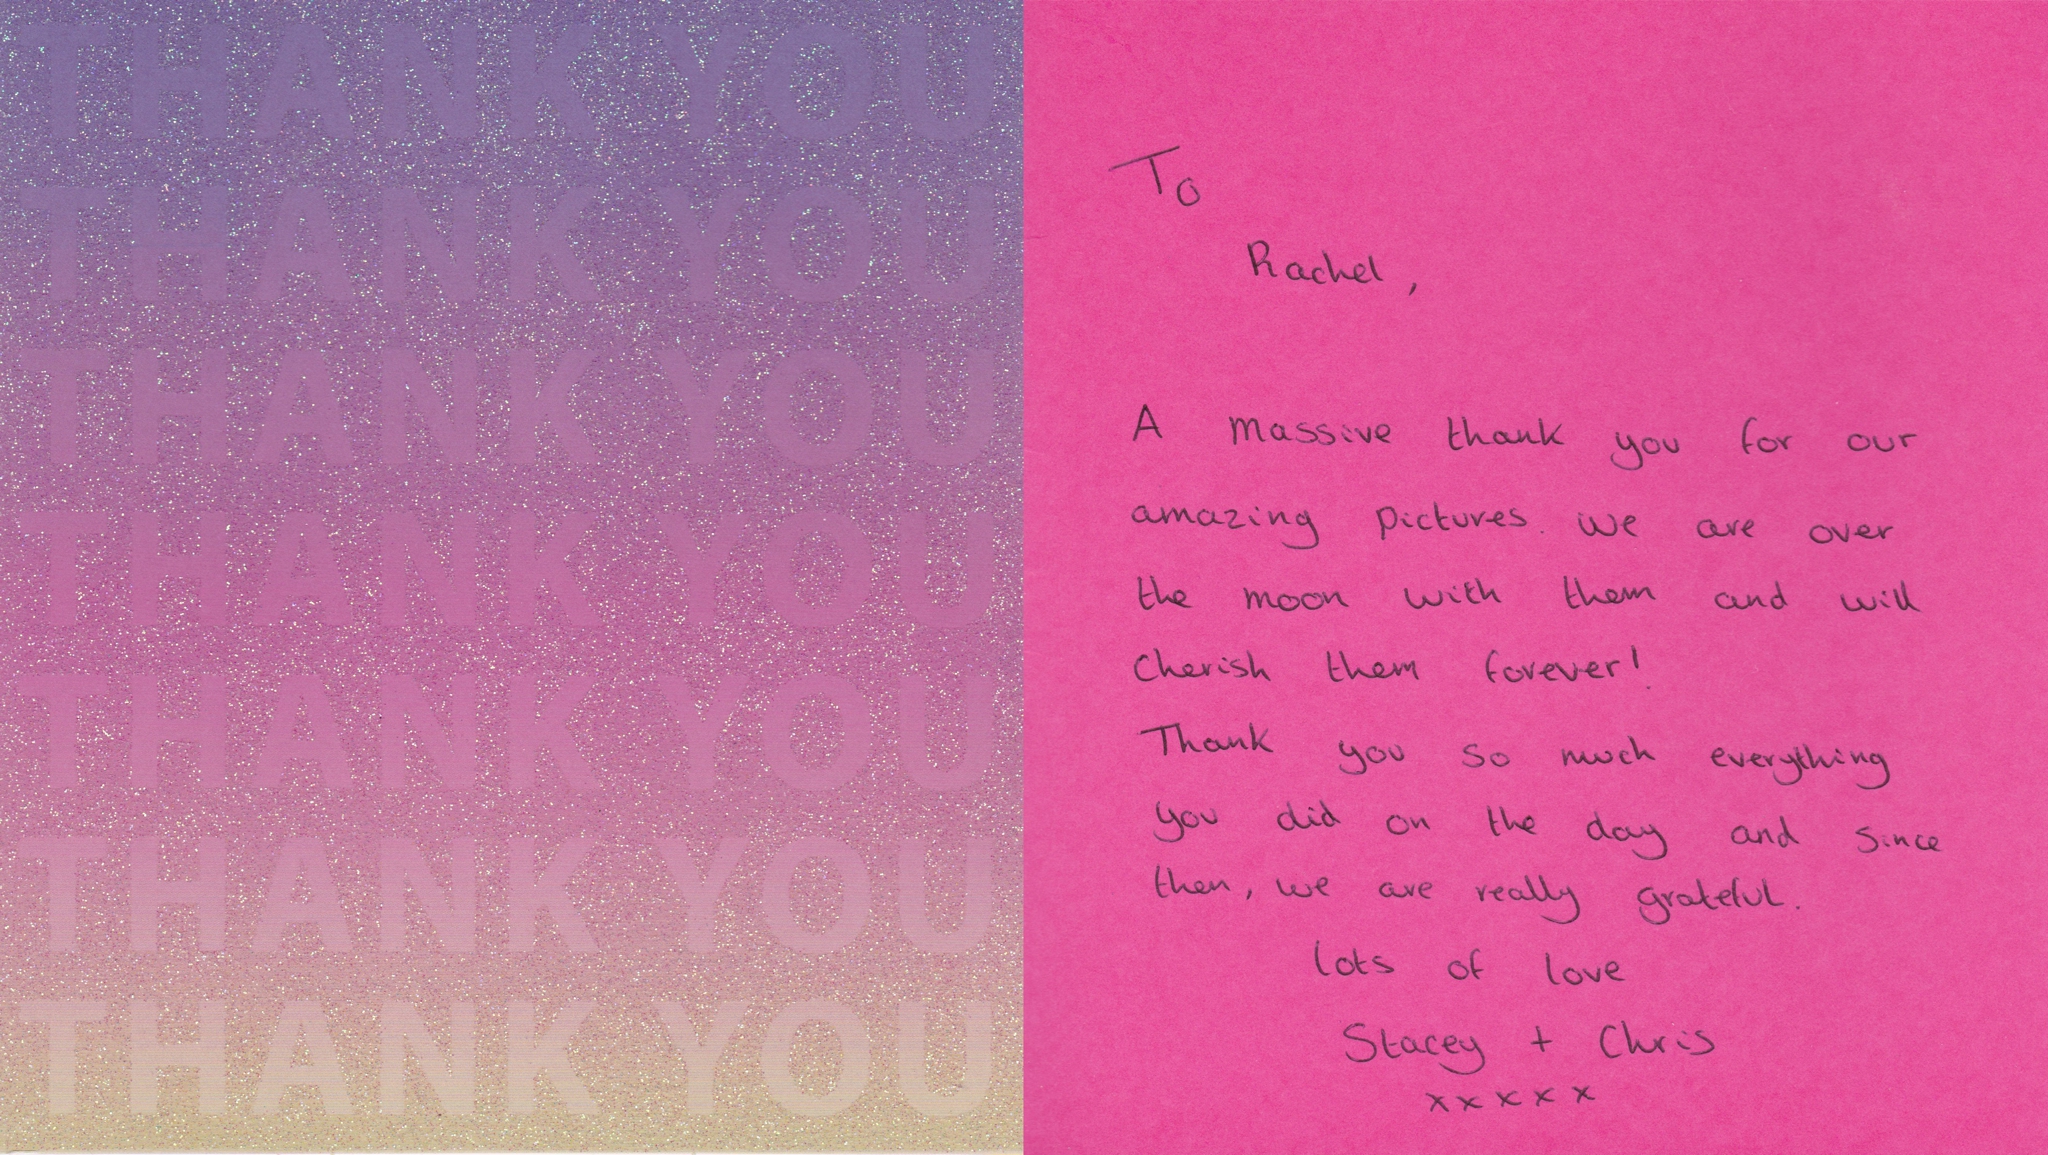 THANK YOU
THANK YOU
THANK YOU
THANK YOU
THANK YOU
THANK YOU
THANK YOU
To
Rachel,
A massive thank you for our
amazing pictures. We are over
the moon with them and will
cherish them forever!
Thank you so much everything
you did on the day and since
then, we are really grateful.
lots of love
Stacey + Chris
xxxxx